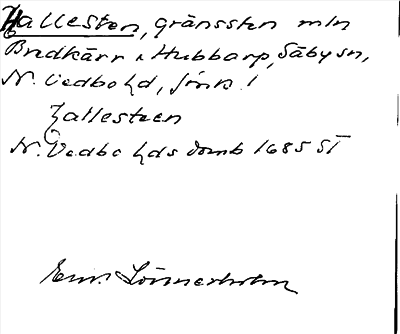 Hallesten, gränssten mln
Bredkärr o Hubbarp, Säby sn,
N. Vedbo hd, Jönk. l
hallesteen
N. Vedbo hds domb 1685 ST
Erw. Lönnerholm